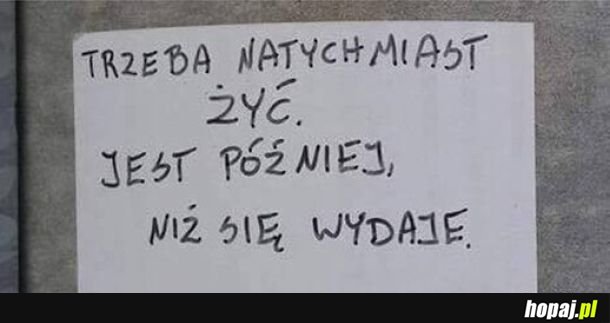 TRZEBA NATYCHMIAST
ŻYĆ.
JEST PÓŹNIEJ,
NIŻ SIĘ WYDAJE.
hopaj.pl